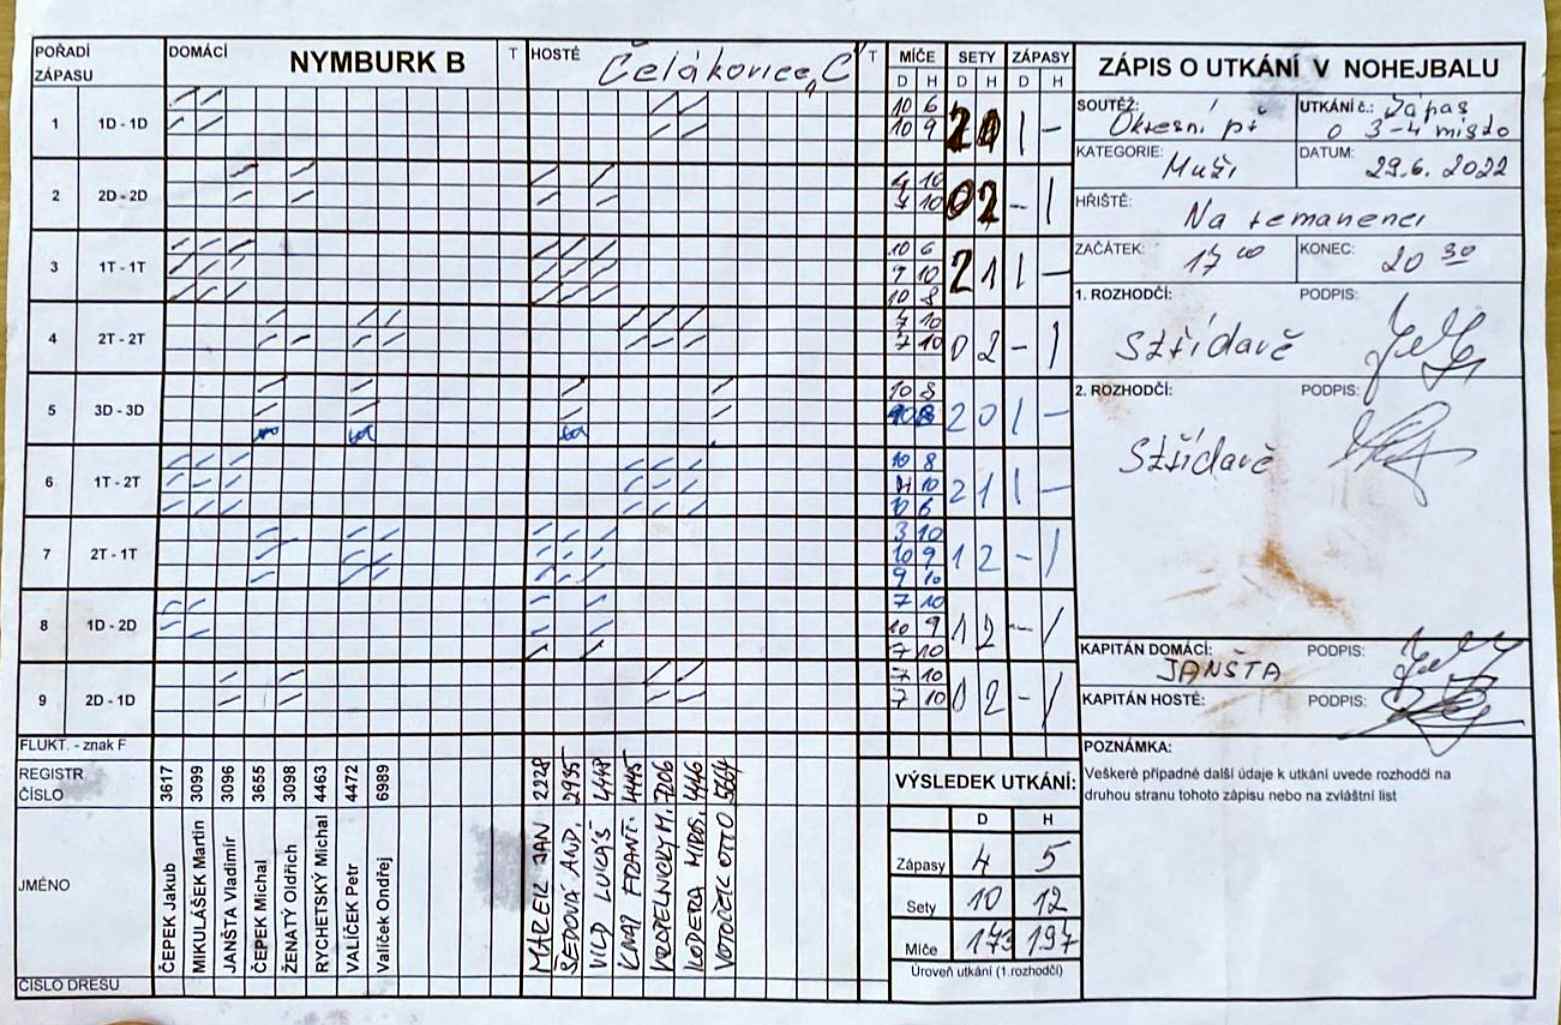 POŘADÍ ZÁPASU DOMÁCÍ NYMBURK B T HOSTÉ Čelákovice C T MÍČE SETY ZÁPASY
D H D H D H
1 1D - 1D 10 6 2 0 1 -
10 9
2 2D - 2D 4 10 0 2 - 1
10
3 1T - 1T 10 6 2 1 1 -
9 10
10 8
4 2T - 2T 7 10 0 2 - 1
7 10
5 3D - 3D 10 8 2 0 1 -
10 8
6 1T - 2T 10 8 2 1 1 -
10
10 6
7 2T - 1T 3 10 1 2 - 1
10 9
9 10
8 1D - 2D 7 10 1 2 - 1
10 9
7 10
9 2D - 1D 7 10 0 2 - 1
7 10
FLUKT. - znak F
REGISTR. ČÍSLO 3617 3099 3096 3655 3098 4463 4472 6989 2228 2935 4448 4445 7206 4446 5664
JMÉNO
ČEPEK Jakub
MIKULÁŠEK Martin
JANŠTA Vladimír
ČEPEK Michal
ŽENATÝ Oldřich
RYCHETSKÝ Michal
VALÍČEK Petr
Valíček Ondřej
MAREK JAN
ŠEDOVÁ AND.
VILD LUKÁŠ
KNAP FRANT.
KOPELNICKY M.
KODERA MIROS.
VOTOČEK OTTO
ČÍSLO DRESU
VÝSLEDEK UTKÁNÍ:
D H
Zápasy 4 5
Sety 10 12
Míče 173 197
Úroveň utkání (1.rozhodčí)
ZÁPIS O UTKÁNÍ V NOHEJBALU
SOUTĚŽ: Okresní př
UTKÁNÍ č.: Zápas
o 3-4 místo
KATEGORIE: Muži
DATUM: 29.6. 2022
HŘIŠTĚ: Na remanenci
ZAČÁTEK: 17 00
KONEC: 20 30
1. ROZHODČÍ: PODPIS:
Střídavě
2. ROZHODČÍ: PODPIS:
Střídavě
KAPITÁN DOMÁCÍ: PODPIS:
JANŠTA
KAPITÁN HOSTÉ: PODPIS:
POZNÁMKA:
Veškeré případné další údaje k utkání uvede rozhodčí na
druhou stranu tohoto zápisu nebo na zvláštní list